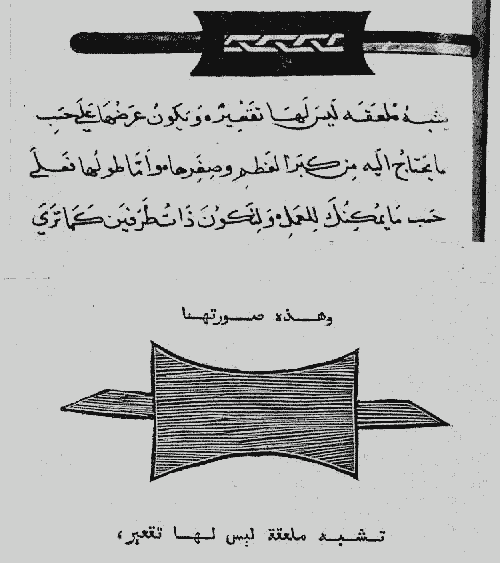 يشبه ملعقه ليس لها تقعير ه وتكون عرضها على حسب
ما يحتاج اليه من كبر العظم وصغرها ه واما طولها فعلى
حسب ما يمكنك للعمل ه ولتكون ذات طرفين كما ترى
وهـذه صـورتهـا
تـشـبـه ملعقة ليس لـهـا تقعير،